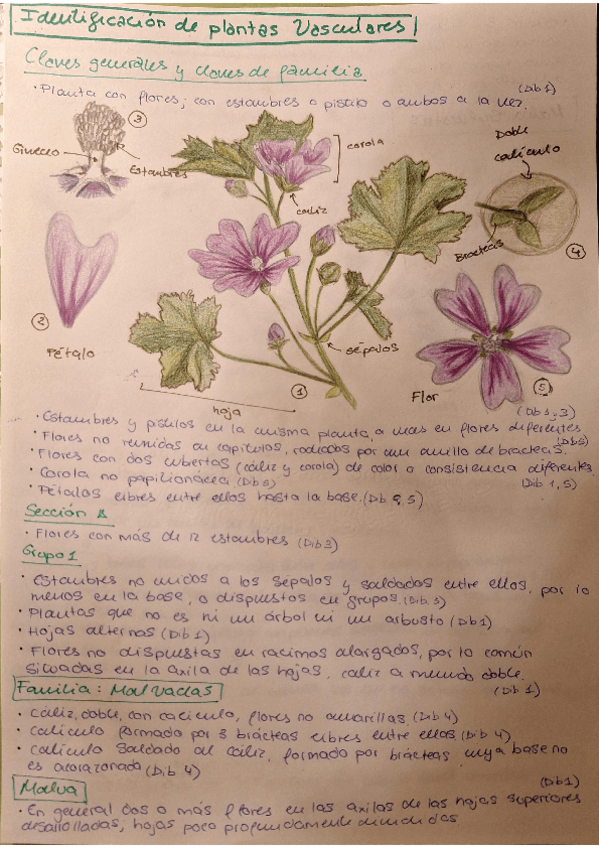 Identificación de plantas Vasculares
Claves generales y claves de familia
(Db1)
· Planta con flores; con estambres o pistilo o ambos a la vez.
3
Gineceo
Estambres
corola
cáliz
Doble
calículo
Brácteas
4
2
Pétalo
sépalos
1
hoja
Flor
5
· Estambres y pistilos en la misma planta, o mas en flores diferentes (Db1,3)
· Flores no reunidas en capítulos, rodeados por un anillo de brácteas. (Db5)
· Flores con dos cubiertas (cáliz y corola) de color o consistencia diferentes.
· Corola no papilionácea (Db5) (Dib 1,5)
· Pétalos libres entre ellos hasta la base. (Db 2, 5)
Sección
· Flores con más de 12 estambres (Dib3)
Grupo 1
· Estambres no unidos a los sépalos y soldados entre ellos, por lo
menos en la base, o dispuestos en grupos. (Dib. 3)
· Plantas que no es ni un árbol ni un arbusto (Db1)
· Hojas alternas (Dib1)
· Flores no dispuestas en racimos alargados, por lo común
situadas en la axila de las hojas, caliz a menudo doble.
(Dib 1)
Familia: Malvaceas
· Cáliz, doble, con caliculo, flores no amarillas. (Dib 4)
· Calículo formado por 3 brácteas libres entre ellas (Dib 4)
· Calículo soldado al cáliz, formado por brácteas cuya base no
es acorazonada (Dib 4)
Malva
(Db1)
· En general dos o más flores en las axilas de las hojas superiores
desarrolladas, hojas poco profundamente divididas